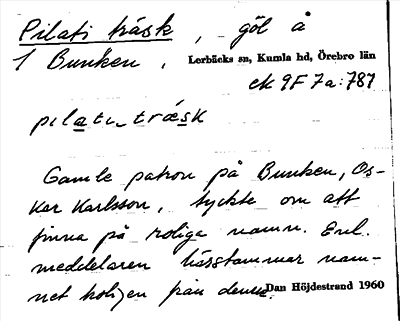 Pilati träsk, göl å
1 Bunken, Lerbäcks sn, Kumla hd, Örebro län
ek 9F 7a:787
pilati_träsk
Gamle patron på Bunken, Os-
kar Karlsson, tyckte om att
finna på roliga namn. Enl.
meddelaren härstammar nam-
net troligen från denne. Dan Höjdestrand 1960